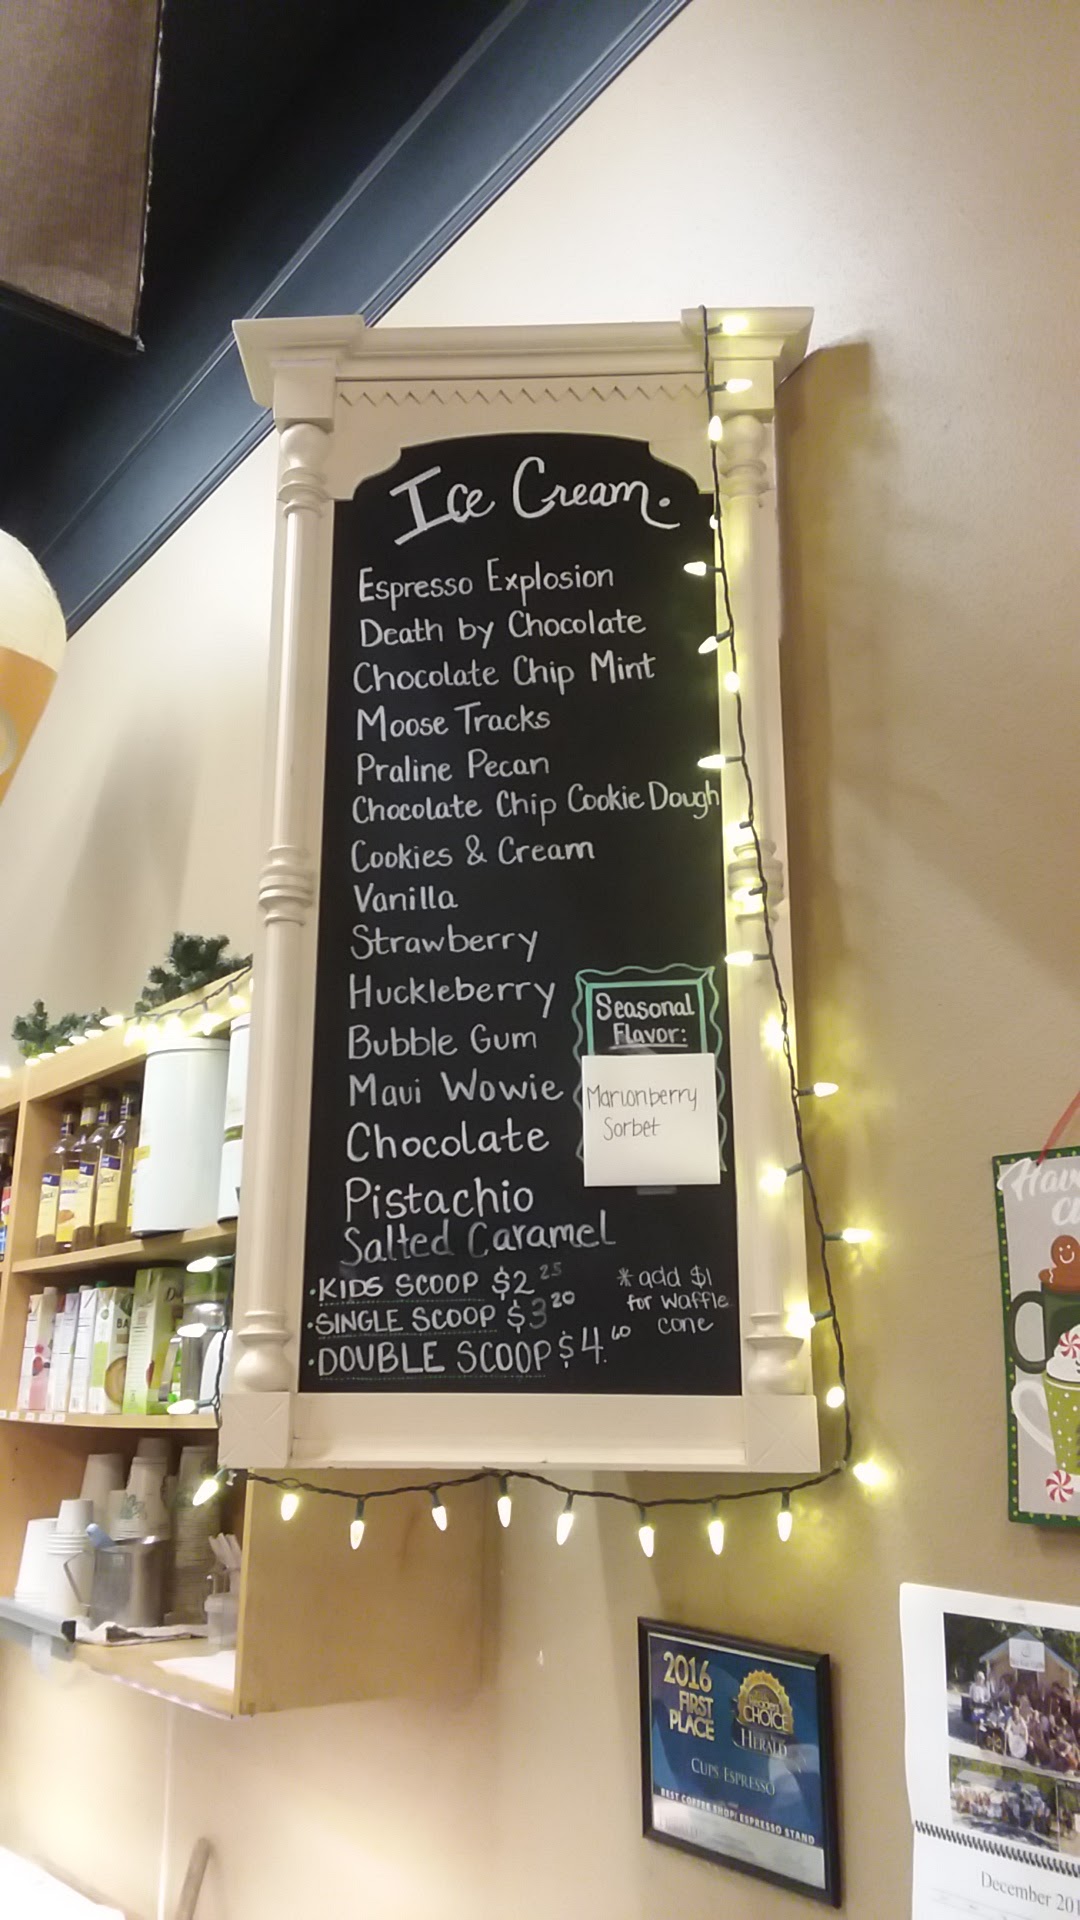 Ice Cream.
Espresso Explosion
Death by Chocolate
Chocolate Chip Mint
Moose Tracks
Praline Pecan
Chocolate Chip Cookie Dough
Cookies & Cream
Vanilla
Strawberry
Huckleberry
Bubble Gum
Maui Wowie
Chocolate
Pistachio
Salted Caramel
Seasonal
Flavor:
Marionberry
Sorbet
·KIDS SCOOP $2 25
·SINGLE SCOOP $3 20
·DOUBLE SCOOP $4. 60
* add $1
for waffle
cone
2016
FIRST
PLACE
CHOICE
HERALD
CUPS ESPRESSO
BEST COFFEE SHOP/ESPRESSO STAND
December 201